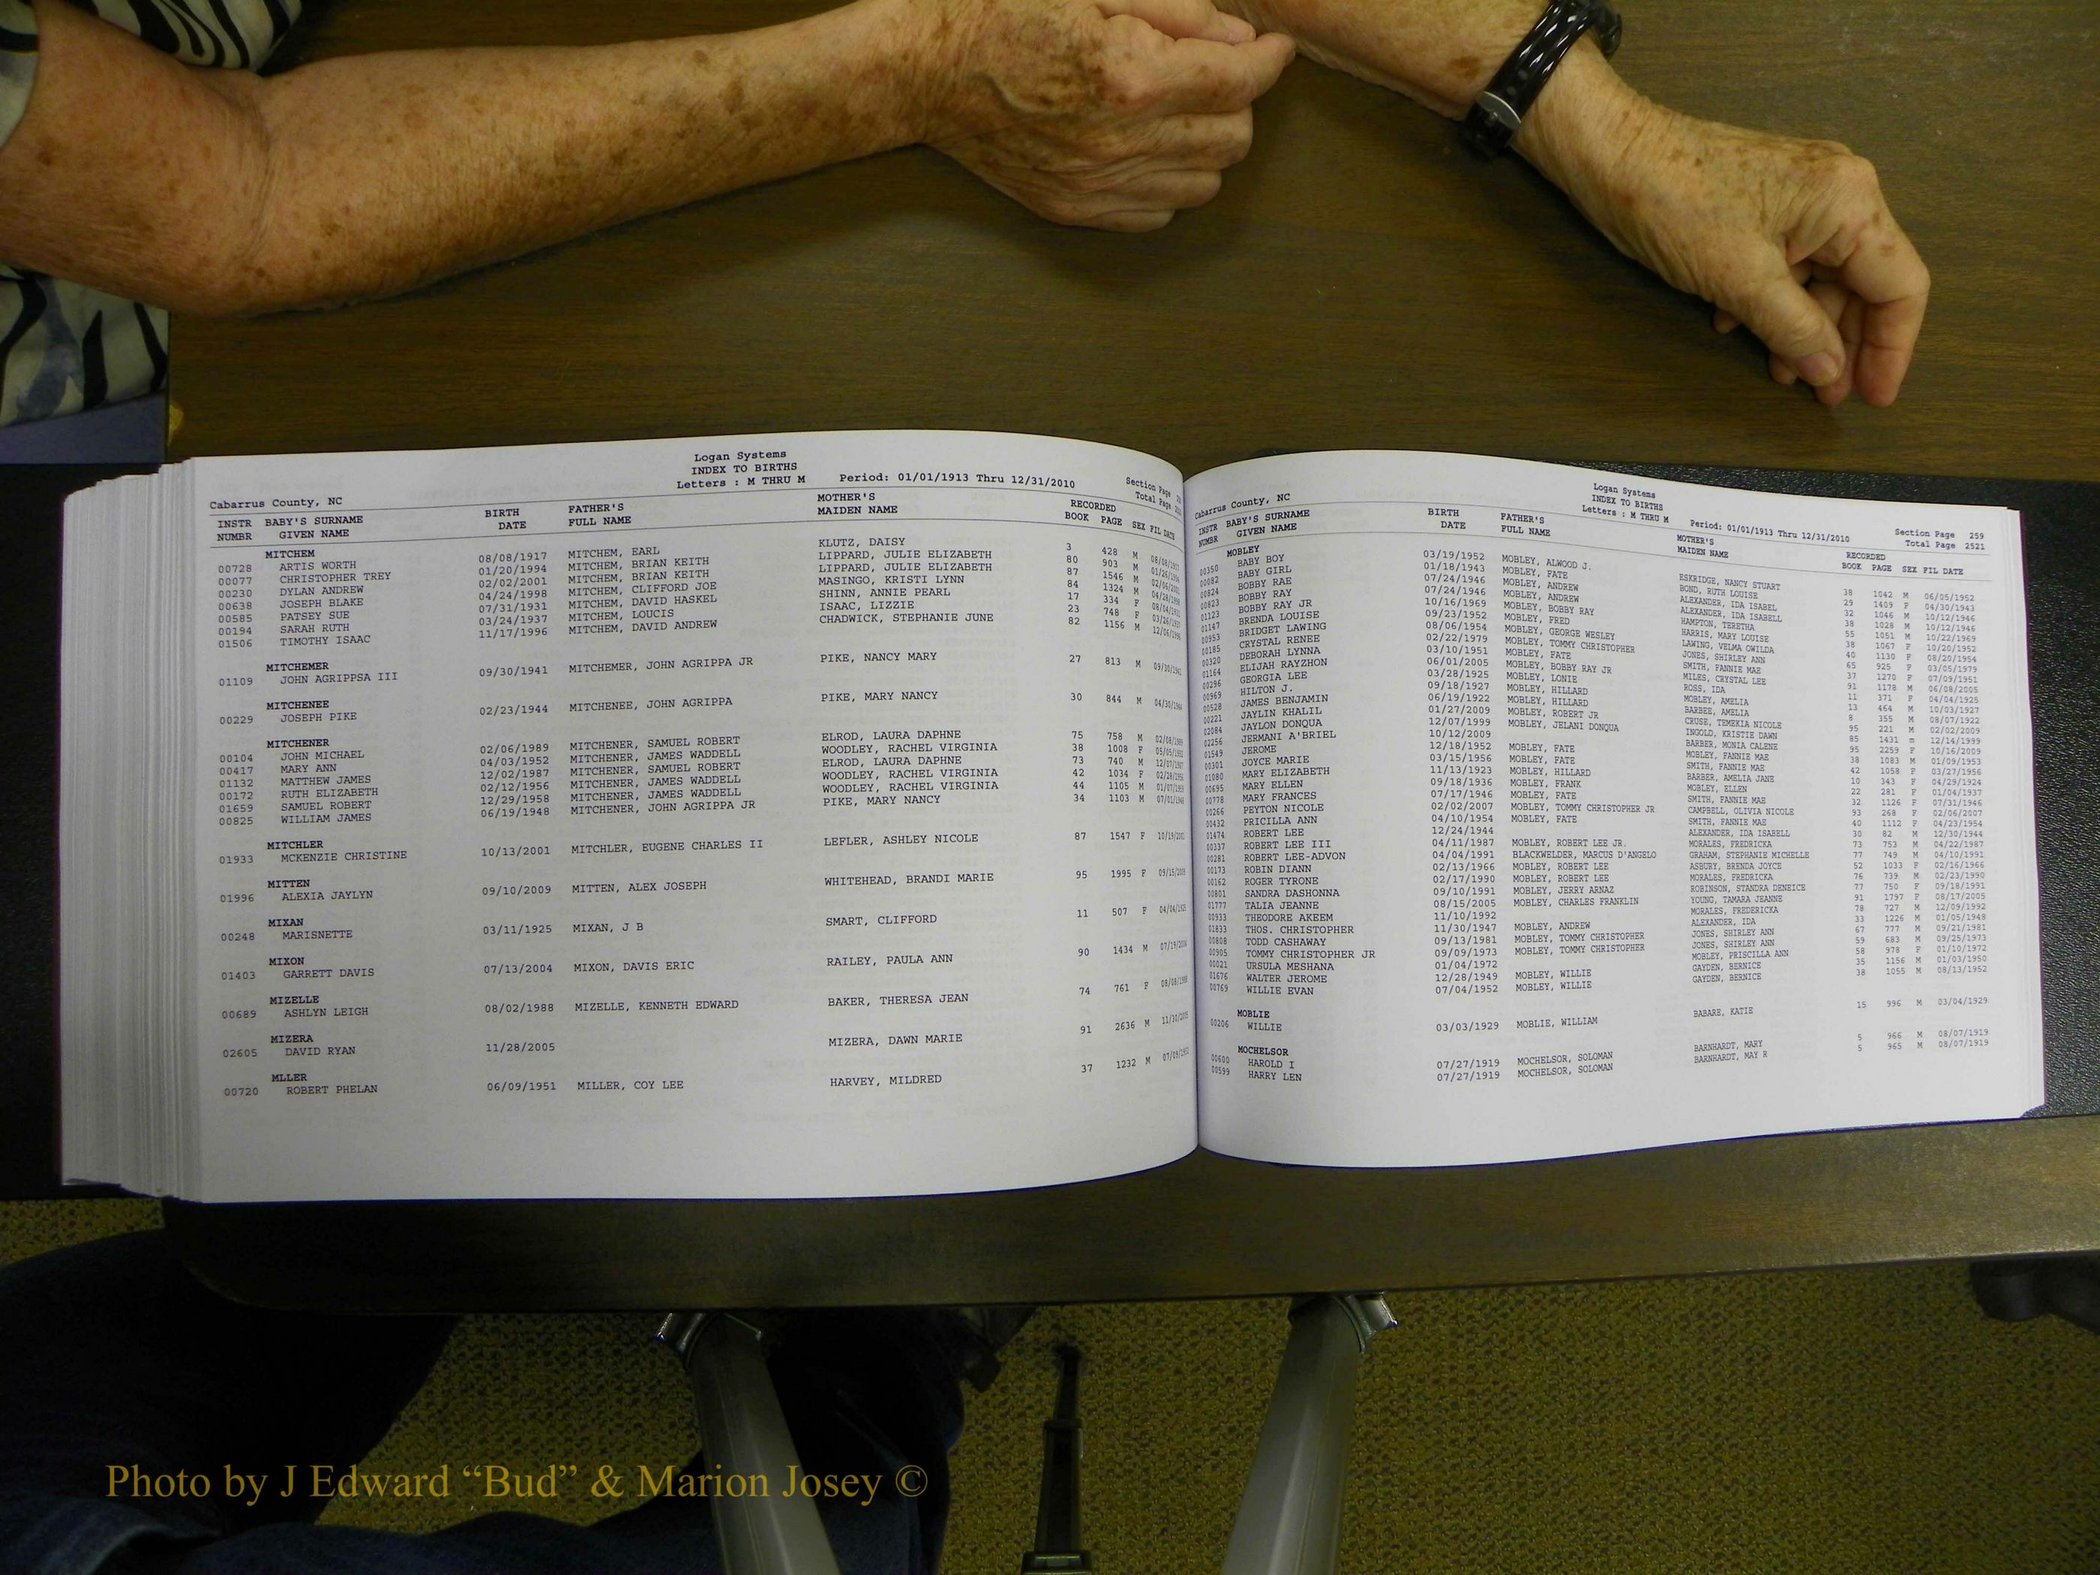 Logan Systems
INDEX TO BIRTHS
Cabarrus County, NC Letters : M THRU M Period: 01/01/1913 Thru 12/31/2010 Section Page
Total Page
INSTR BABY'S SURNAME BIRTH FATHER'S MOTHER'S RECORDED
NUMBR GIVEN NAME DATE FULL NAME MAIDEN NAME BOOK PAGE SEX FIL DATE
MITCHEM
00728 ARTIS WORTH 08/08/1917 MITCHEM, EARL KLUTZ, DAISY 3 428 M
00077 CHRISTOPHER TREY 01/20/1994 MITCHEM, BRIAN KEITH LIPPARD, JULIE ELIZABETH 80 903 M 01/26/1994
00230 DYLAN ANDREW 02/02/2001 MITCHEM, BRIAN KEITH LIPPARD, JULIE ELIZABETH 87 1546 M 02/06/2001
00638 JOSEPH BLAKE 04/24/1998 MITCHEM, CLIFFORD JOE MASINGO, KRISTI LYNN 84 1324 M 04/28/1998
00585 PATSEY SUE 07/31/1931 MITCHEM, DAVID HASKEL SHINN, ANNIE PEARL 17 334 F 08/04/1931
00194 SARAH RUTH 03/24/1937 MITCHEM, LOUCIS ISAAC, LIZZIE 23 748 F 03/26/1937
01506 TIMOTHY ISAAC 11/17/1996 MITCHEM, DAVID ANDREW CHADWICK, STEPHANIE JUNE 82 1156 M 12/06/1996
MITCHEMER
01109 JOHN AGRIPPSA III 09/30/1941 MITCHEMER, JOHN AGRIPPA JR PIKE, NANCY MARY 27 813 M 09/30/1941
MITCHENEE
00229 JOSEPH PIKE 02/23/1944 MITCHENEE, JOHN AGRIPPA PIKE, MARY NANCY 30 844 M 04/30/1944
MITCHENER
00104 JOHN MICHAEL 02/06/1989 MITCHENER, SAMUEL ROBERT ELROD, LAURA DAPHNE 75 758 M 02/08/1989
00417 MARY ANN 04/03/1952 MITCHENER, JAMES WADDELL WOODLEY, RACHEL VIRGINIA 38 1008 F 05/05/1952
01132 MATTHEW JAMES 12/02/1987 MITCHENER, SAMUEL ROBERT ELROD, LAURA DAPHNE 73 740 M 12/07/1987
00172 RUTH ELIZABETH 02/12/1956 MITCHENER, JAMES WADDELL WOODLEY, RACHEL VIRGINIA 42 1034 F 02/28/1956
01659 SAMUEL ROBERT 12/29/1958 MITCHENER, JAMES WADDELL WOODLEY, RACHEL VIRGINIA 44 1105 M 01/07/1959
00825 WILLIAM JAMES 06/19/1948 MITCHENER, JOHN AGRIPPA JR PIKE, MARY NANCY 34 1103 M 07/01/1948
MITCHLER
01933 MCKENZIE CHRISTINE 10/13/2001 MITCHLER, EUGENE CHARLES II LEFLER, ASHLEY NICOLE 87 1547 F 10/19/2001
MITTEN
01996 ALEXIA JAYLYN 09/10/2009 MITTEN, ALEX JOSEPH WHITEHEAD, BRANDI MARIE 95 1995 F 09/15/2009
MIXAN
00248 MARISNETTE 03/11/1925 MIXAN, J B SMART, CLIFFORD 11 507 F 04/04/1925
MIXON
01403 GARRETT DAVIS 07/13/2004 MIXON, DAVIS ERIC RAILEY, PAULA ANN 90 1434 M 07/19/2004
MIZELLE
00689 ASHLYN LEIGH 08/02/1988 MIZELLE, KENNETH EDWARD BAKER, THERESA JEAN 74 761 F 08/08/1988
MIZERA
02605 DAVID RYAN 11/28/2005 MIZERA, DAWN MARIE 91 2636 M 11/30/2005
MLLER
00720 ROBERT PHELAN 06/09/1951 MILLER, COY LEE HARVEY, MILDRED 37 1232 M 07/09/1951
Logan Systems
INDEX TO BIRTHS
Cabarrus County, NC Letters : M THRU M Period: 01/01/1913 Thru 12/31/2010 Section Page 259
Total Page 2521
INSTR BABY'S SURNAME BIRTH FATHER'S MOTHER'S RECORDED
NUMBR GIVEN NAME DATE FULL NAME MAIDEN NAME BOOK PAGE SEX FIL DATE
MOBLEY
00350 BABY BOY 03/19/1952 MOBLEY, ALWOOD J. ESKRIDGE, NANCY STUART 38 1042 M 06/05/1952
00082 BABY GIRL 01/18/1943 MOBLEY, FATE BOND, RUTH LOUISE 29 1409 F 04/30/1943
00824 BOBBY RAE 07/24/1946 MOBLEY, ANDREW ALEXANDER, IDA ISABEL 32 1046 M 10/12/1946
00823 BOBBY RAY 07/24/1946 MOBLEY, ANDREW ALEXANDER, IDA ISABELL 38 1028 M 10/12/1946
01123 BOBBY RAY JR 10/16/1969 MOBLEY, BOBBY RAY HAMPTON, TERETHA 55 1051 M 10/22/1969
01147 BRENDA LOUISE 09/23/1952 MOBLEY, FRED HARRIS, MARY LOUISE 38 1067 F 10/20/1952
00953 BRIDGET LAWING 08/06/1954 MOBLEY, GEORGE WESLEY LAWING, VELMA OWILDA 40 1130 F 08/20/1954
00185 CRYSTAL RENEE 02/22/1979 MOBLEY, TOMMY CHRISTOPHER JONES, SHIRLEY ANN 65 925 F 03/05/1979
00320 DEBORAH LYNNA 03/10/1951 MOBLEY, FATE SMITH, FANNIE MAE 37 1270 F 07/09/1951
01164 ELIJAH RAYZHON 06/01/2005 MOBLEY, BOBBY RAY JR MILES, CRYSTAL LEE 91 1178 M 06/08/2005
00296 GEORGIA LEE 03/28/1925 MOBLEY, LONIE ROSS, IDA 11 371 F 04/04/1925
00969 HILTON J. 09/18/1927 MOBLEY, HILLARD MOBLEY, AMELIA 13 464 M 10/03/1927
00528 JAMES BENJAMIN 06/19/1922 MOBLEY, HILLARD BARBEE, AMELIA 8 355 M 08/07/1922
00221 JAYLIN KHALIL 01/27/2009 MOBLEY, ROBERT JR CRUSE, TEMEKIA NICOLE 95 221 M 02/02/2009
02084 JAYLON DONQUA 12/07/1999 MOBLEY, JELANI DONQUA INGOLD, KRISTIE DAWN 85 1431 m 12/14/1999
02256 JERMANI A'BRIEL 10/12/2009 BARBER, MONIA CALENE 95 2259 F 10/16/2009
01549 JEROME 12/18/1952 MOBLEY, FATE MOBLEY, FANNIE MAE 38 1083 M 01/09/1953
00301 JOYCE MARIE 03/15/1956 MOBLEY, FATE SMITH, FANNIE MAE 42 1058 F 03/27/1956
01080 MARY ELIZABETH 11/13/1923 MOBLEY, HILLARD BARBER, AMELIA JANE 10 343 F 04/29/1924
00695 MARY ELLEN 09/18/1936 MOBLEY, FRANK MOBLEY, ELLEN 22 281 F 01/04/1937
00778 MARY FRANCES 07/17/1946 MOBLEY, FATE SMITH, FANNIE MAE 32 1126 F 07/31/1946
00266 PEYTON NICOLE 02/02/2007 MOBLEY, TOMMY CHRISTOPHER JR CAMPBELL, OLIVIA NICOLE 93 268 F 02/06/2007
00432 PRICILLA ANN 04/10/1954 MOBLEY, FATE SMITH, FANNIE MAE 40 1112 F 04/23/1954
01474 ROBERT LEE 12/24/1944 ALEXANDER, IDA ISABELL 30 82 M 12/30/1944
00337 ROBERT LEE III 04/11/1987 MOBLEY, ROBERT LEE JR. MORALES, FREDRICKA 73 753 M 04/22/1987
00281 ROBERT LEE-ADVON 04/04/1991 BLACKWELDER, MARCUS D'ANGELO GRAHAM, STEPHANIE MICHELLE 77 749 M 04/10/1991
00173 ROBIN DIANN 02/13/1966 MOBLEY, ROBERT LEE ASBURY, BRENDA JOYCE 52 1033 F 02/16/1966
00162 ROGER TYRONE 02/17/1990 MOBLEY, ROBERT LEE MORALES, FREDRICKA 76 739 M 02/23/1990
00801 SANDRA DASHONNA 09/10/1991 MOBLEY, JERRY ARNAZ ROBINSON, STANDRA DENEICE 77 750 F 09/18/1991
01777 TALIA JEANNE 08/15/2005 MOBLEY, CHARLES FRANKLIN YOUNG, TAMARA JEANNE 91 1797 F 08/17/2005
00933 THEODORE AKEEM 11/10/1992 MORALES, FREDERICKA 78 727 M 12/09/1992
01833 THOS. CHRISTOPHER 11/30/1947 MOBLEY, ANDREW ALEXANDER, IDA 33 1226 M 01/05/1948
00808 TODD CASHAWAY 09/13/1981 MOBLEY, TOMMY CHRISTOPHER JONES, SHIRLEY ANN 67 777 M 09/21/1981
00905 TOMMY CHRISTOPHER JR 09/09/1973 MOBLEY, TOMMY CHRISTOPHER JONES, SHIRLEY ANN 59 683 M 09/25/1973
00021 URSULA MESHANA 01/04/1972 MOBLEY, PRISCILLA ANN 58 978 F 01/10/1972
01676 WALTER JEROME 12/28/1949 MOBLEY, WILLIE GAYDEN, BERNICE 35 1156 M 01/03/1950
00769 WILLIE EVAN 07/04/1952 MOBLEY, WILLIE GAYDEN, BERNICE 38 1055 M 08/13/1952
MOBLIE
00206 WILLIE 03/03/1929 MOBLIE, WILLIAM BABARE, KATIE 15 996 M 03/04/1929
MOCHELSOR
00600 HAROLD I 07/27/1919 MOCHELSOR, SOLOMAN BARNHARDT, MARY 5 966 M 08/07/1919
00599 HARRY LEN 07/27/1919 MOCHELSOR, SOLOMAN BARNHARDT, MAY R 5 965 M 08/07/1919
Photo by J Edward “Bud” & Marion Josey ©